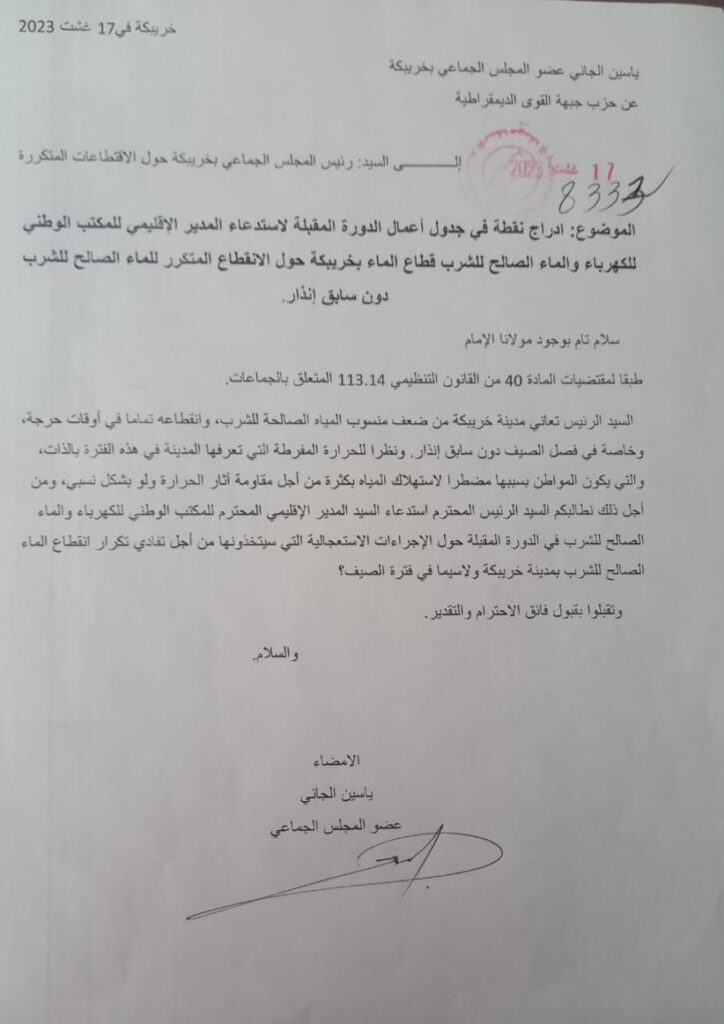 خريبكة في17 غشت 2023
ياسين الجاني عضو المجلس الجماعي بخريبكة
عن حزب جبهة القوى الديمقراطية
إلــــــــى السيد: رئيس المجلس الجماعي بخريبكة حول الاقتطاعات المتكررة
17 غشت 2023
8333
الموضوع: ادراج نقطة في جدول أعمال الدورة المقبلة لاستدعاء المدير الإقليمي للمكتب الوطني
للكهرباء والماء الصالح للشرب قطاع الماء بخريبكة حول الانقطاع المتكرر للماء الصالح للشرب
دون سابق إنذار.
سلام تام بوجود مولانا الإمام
طبقا لمقتضيات المادة 40 من القانون التنظيمي 113.14 المتعلق بالجماعات.
السيد الرئيس تعاني مدينة خريبكة من ضعف منسوب المياه الصالحة للشرب، وانقطاعه تماما في أوقات حرجة،
وخاصة في فصل الصيف دون سابق إنذار. ونظرا للحرارة المفرطة التي تعرفها المدينة في هذه الفترة بالذات،
والتي يكون المواطن بسببها مضطرا لاستهلاك المياه بكثرة من أجل مقاومة آثار الحرارة ولو بشكل نسبي، ومن
أجل ذلك نطالبكم السيد الرئيس المحترم استدعاء السيد المدير الإقليمي المحترم للمكتب الوطني للكهرباء والماء
الصالح للشرب في الدورة المقبلة حول الإجراءات الاستعجالية التي سيتخذونها من أجل تفادي تكرار انقطاع الماء
الصالح للشرب بمدينة خريبكة ولاسيما في فترة الصيف؟
وتقبلوا بقبول فائق الاحترام والتقدير.
والسلام.
الامضاء
ياسين الجاني
عضو المجلس الجماعي